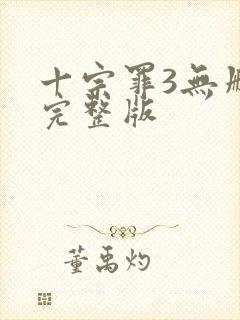 十宗罪3無
完整版
董禹灼